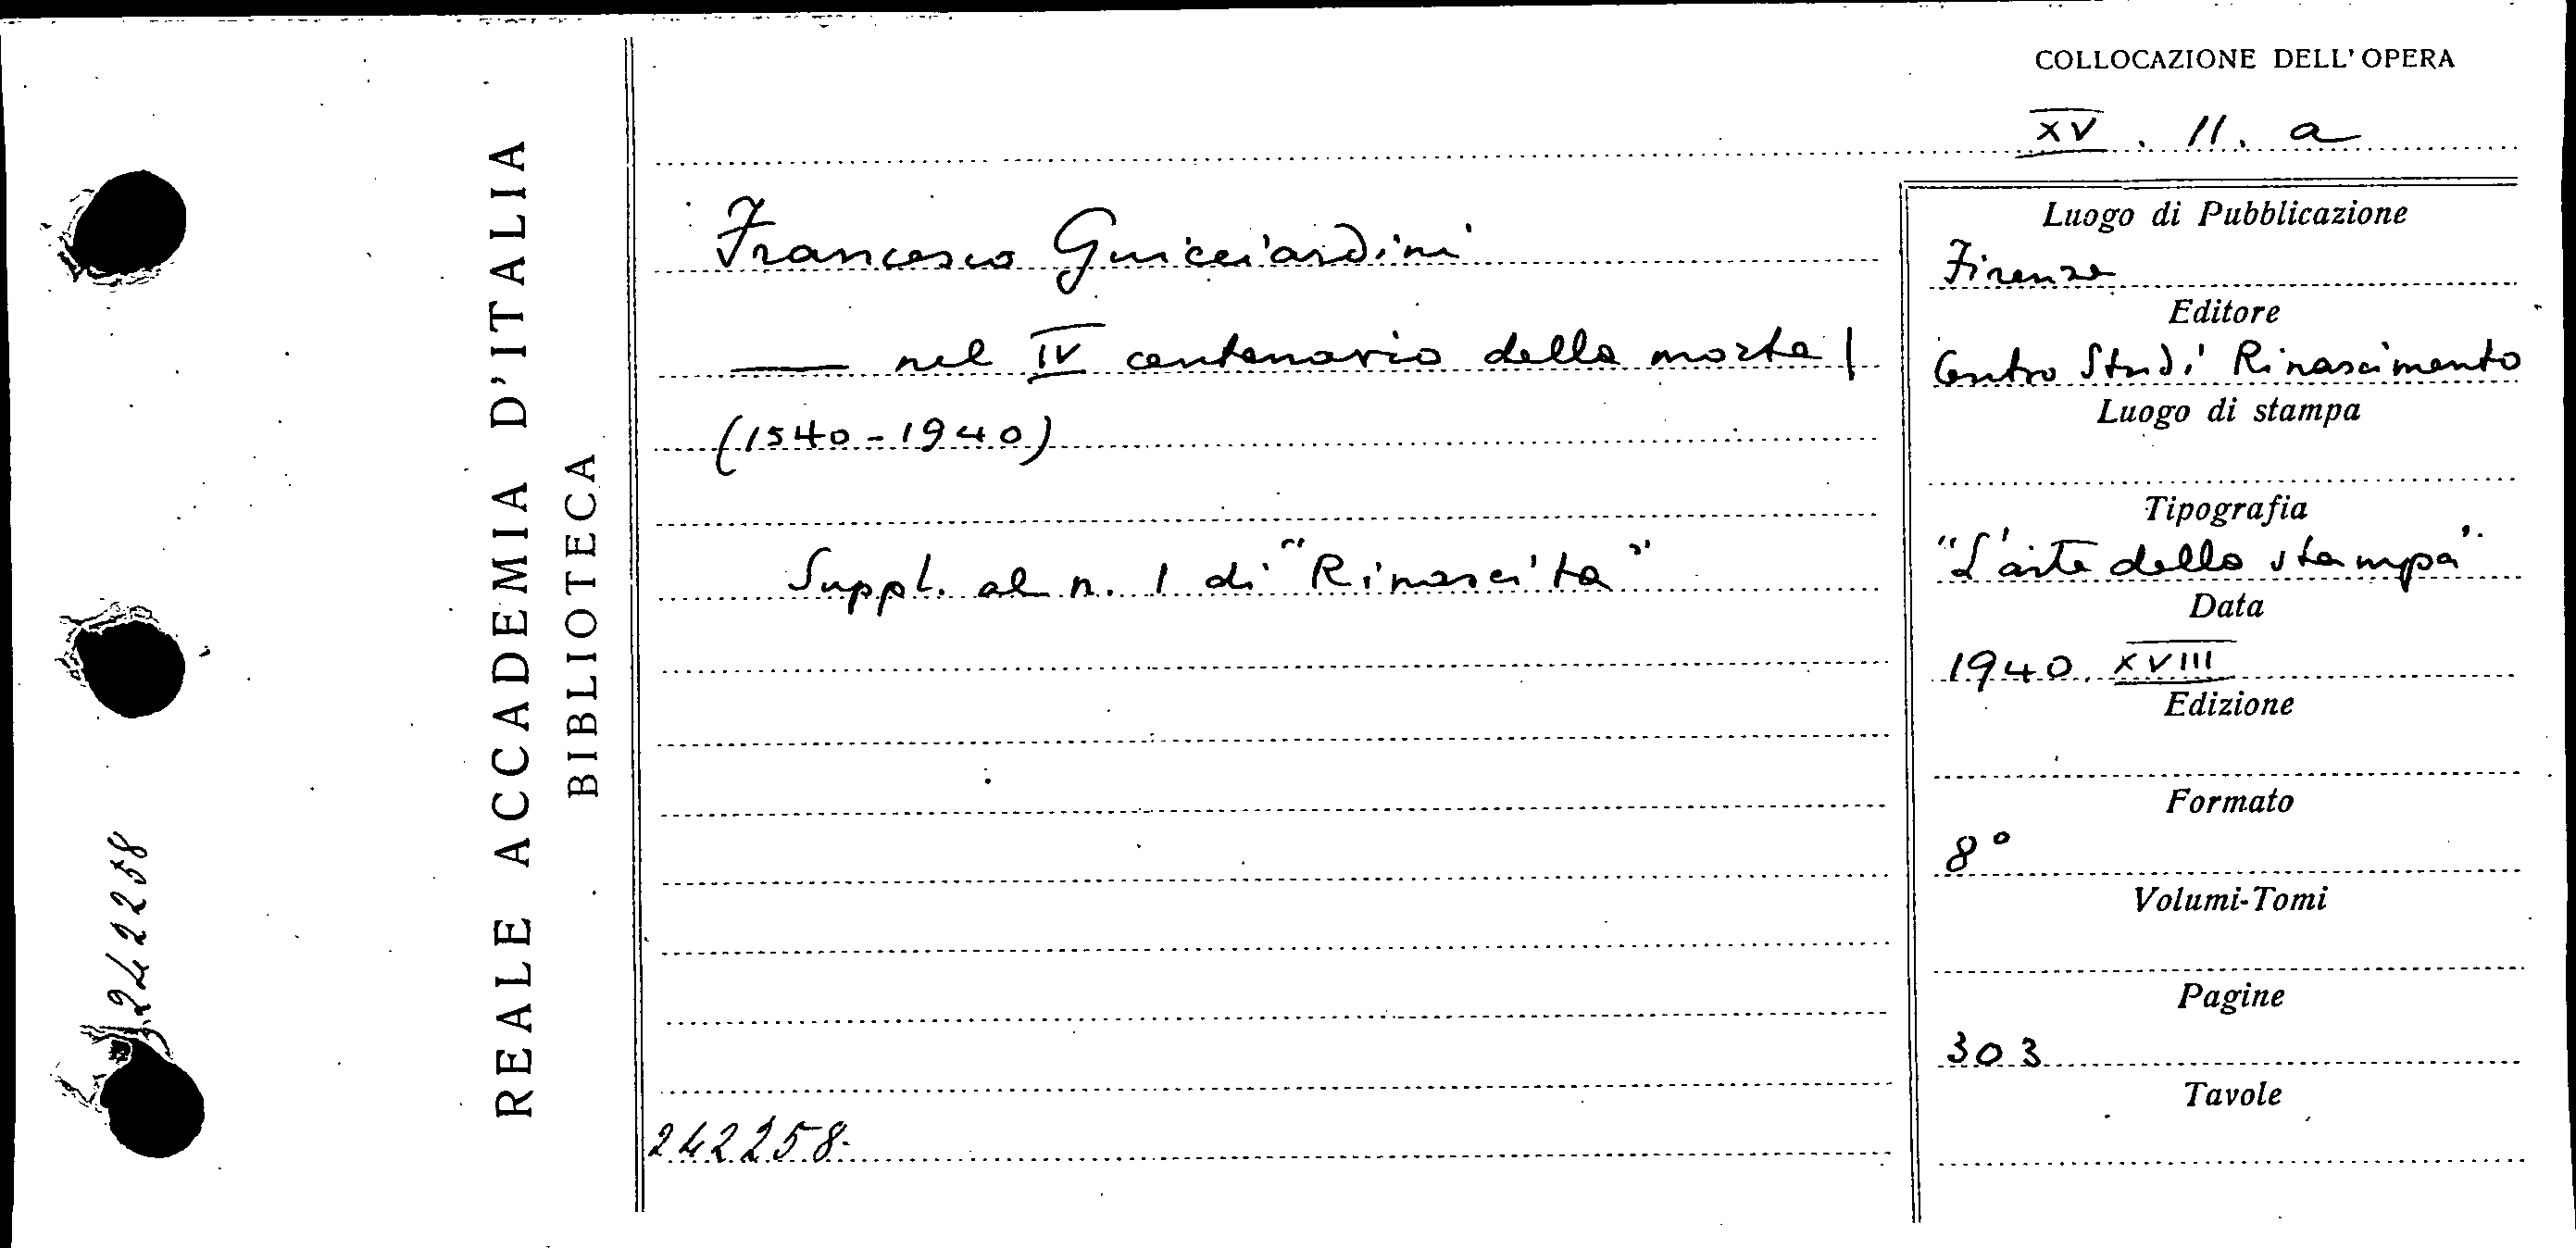 COLLOCAZIONE DELL'OPERA
XV. 11. a
REALE ACCADEMIA D'ITALIA
BIBLIOTECA
242258
Francesco Guicciardini
—— nel IV centenario della morte |
(1540-1940)
Suppl. al n. 1 di "Rinascita"
242258.
Luogo di Pubblicazione
Firenze
Editore
Centro Studi Rinascimento
Luogo di stampa
Tipografia
"L'arte della stampa".
Data
1940. XVIII
Edizione
Formato
8°
Volumi-Tomi
Pagine
303
Tavole